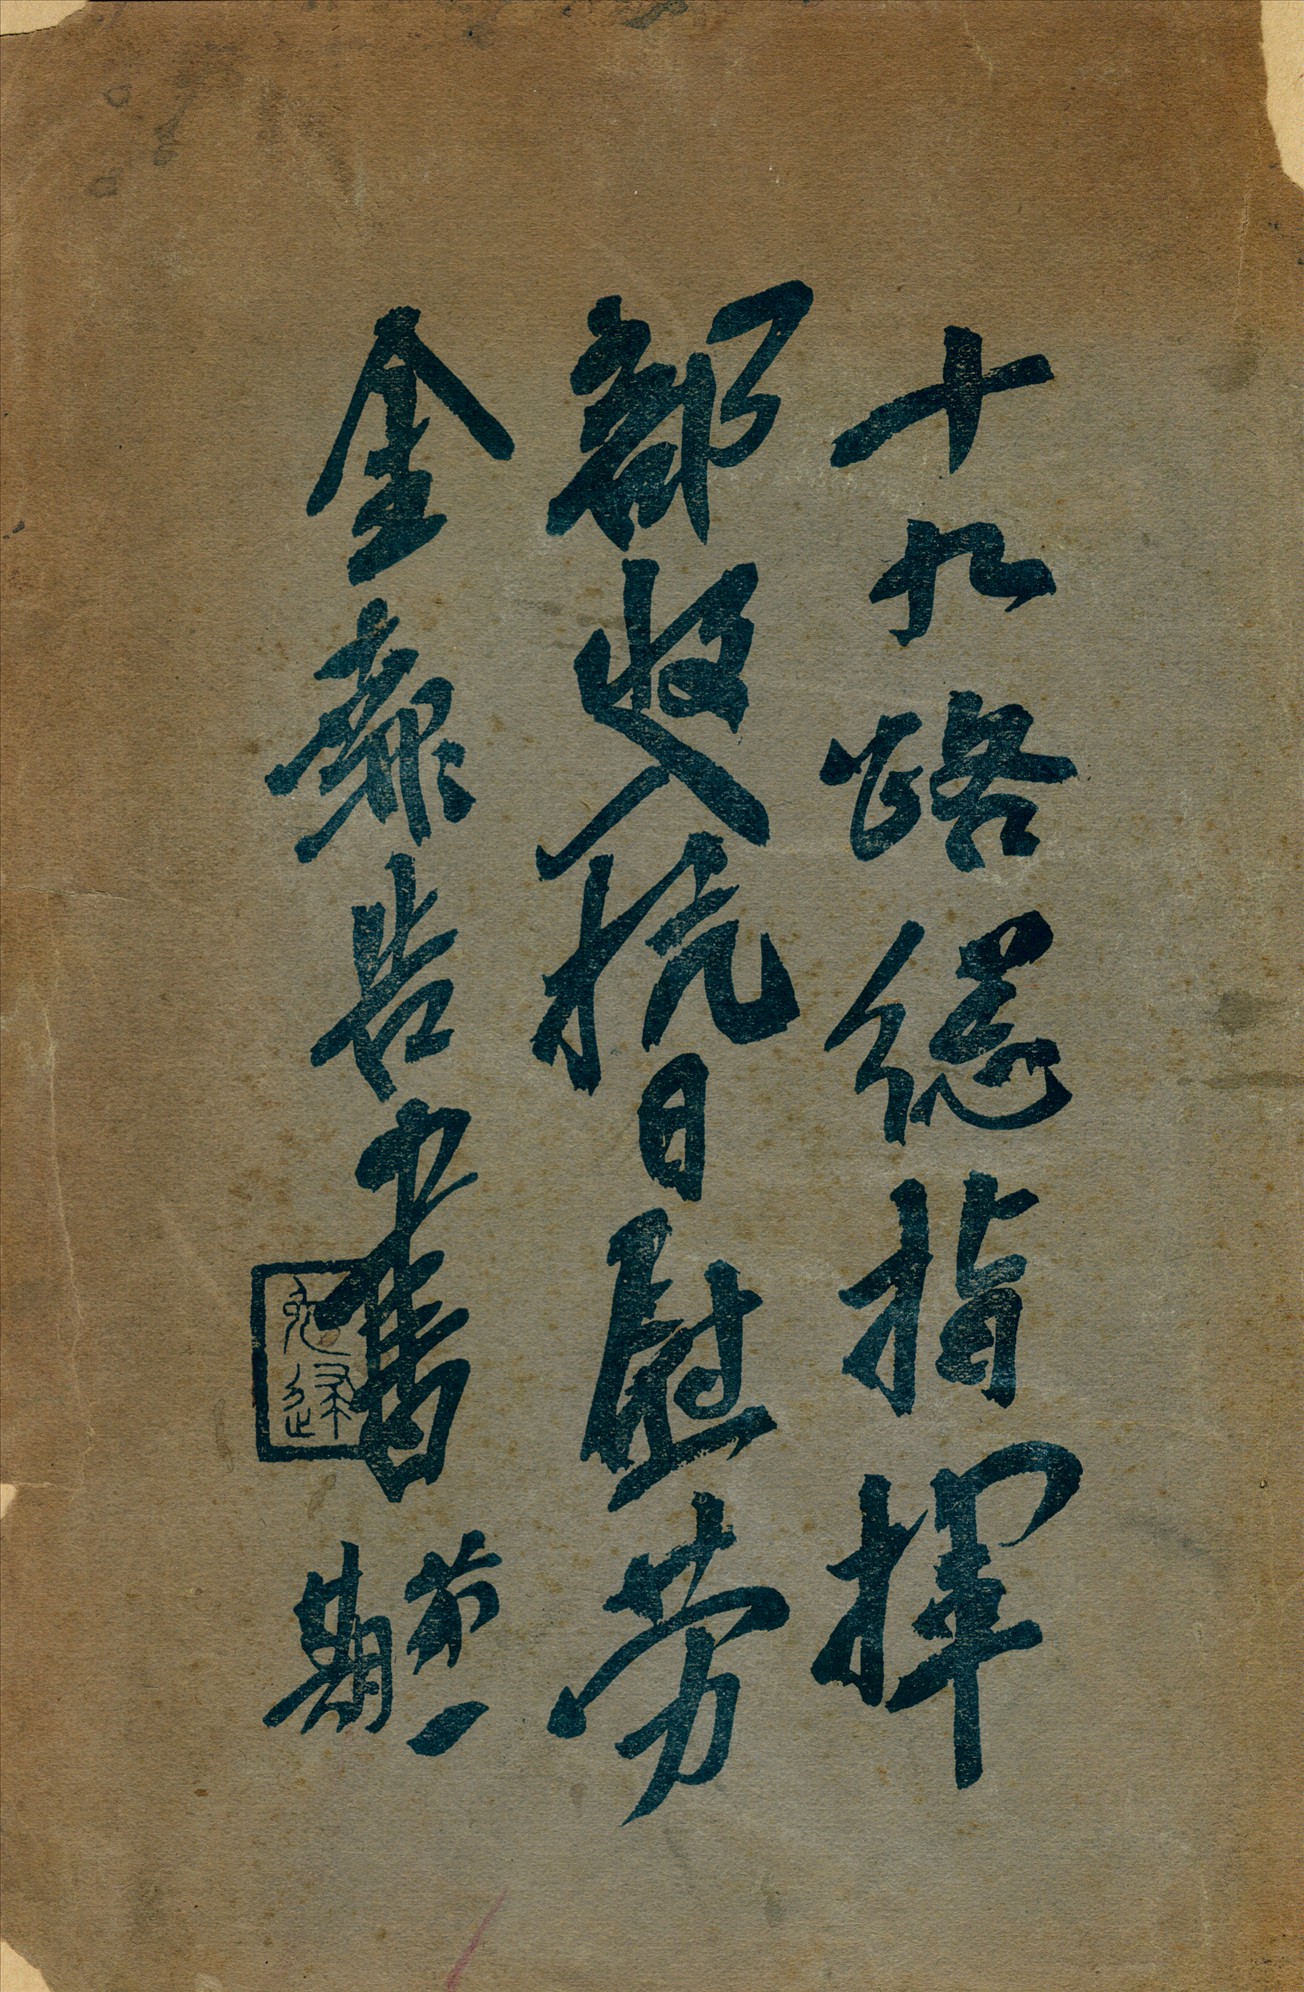 十九路總指揮
部收入抗日慰勞
金報告書
第一
期